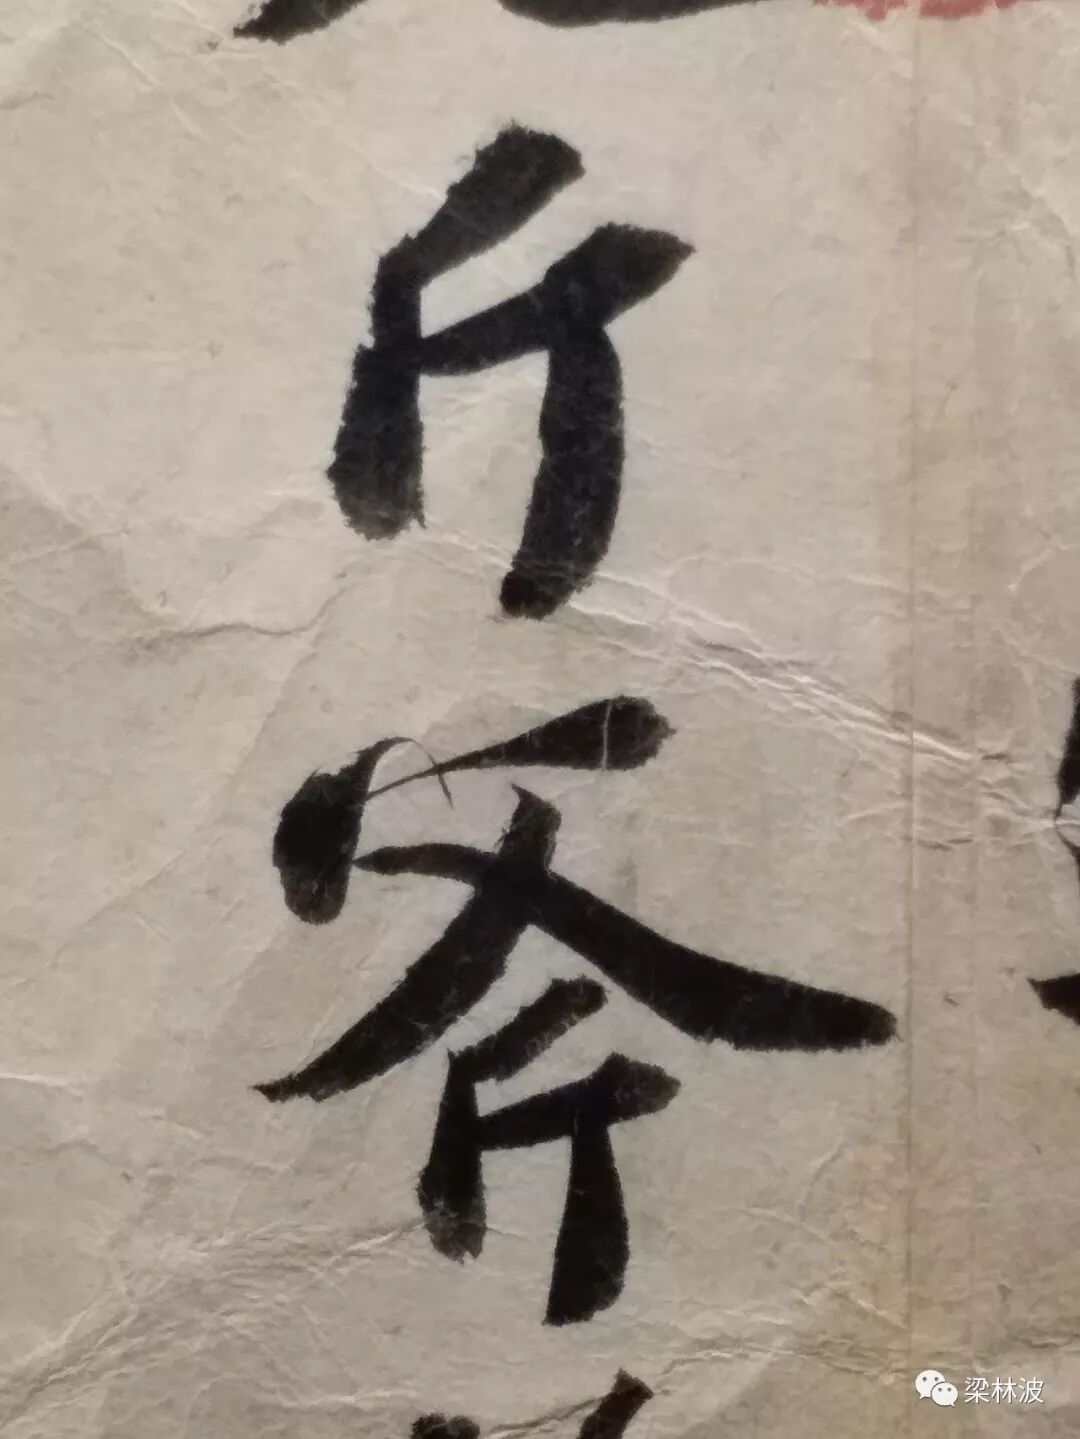 斤斧
梁林波